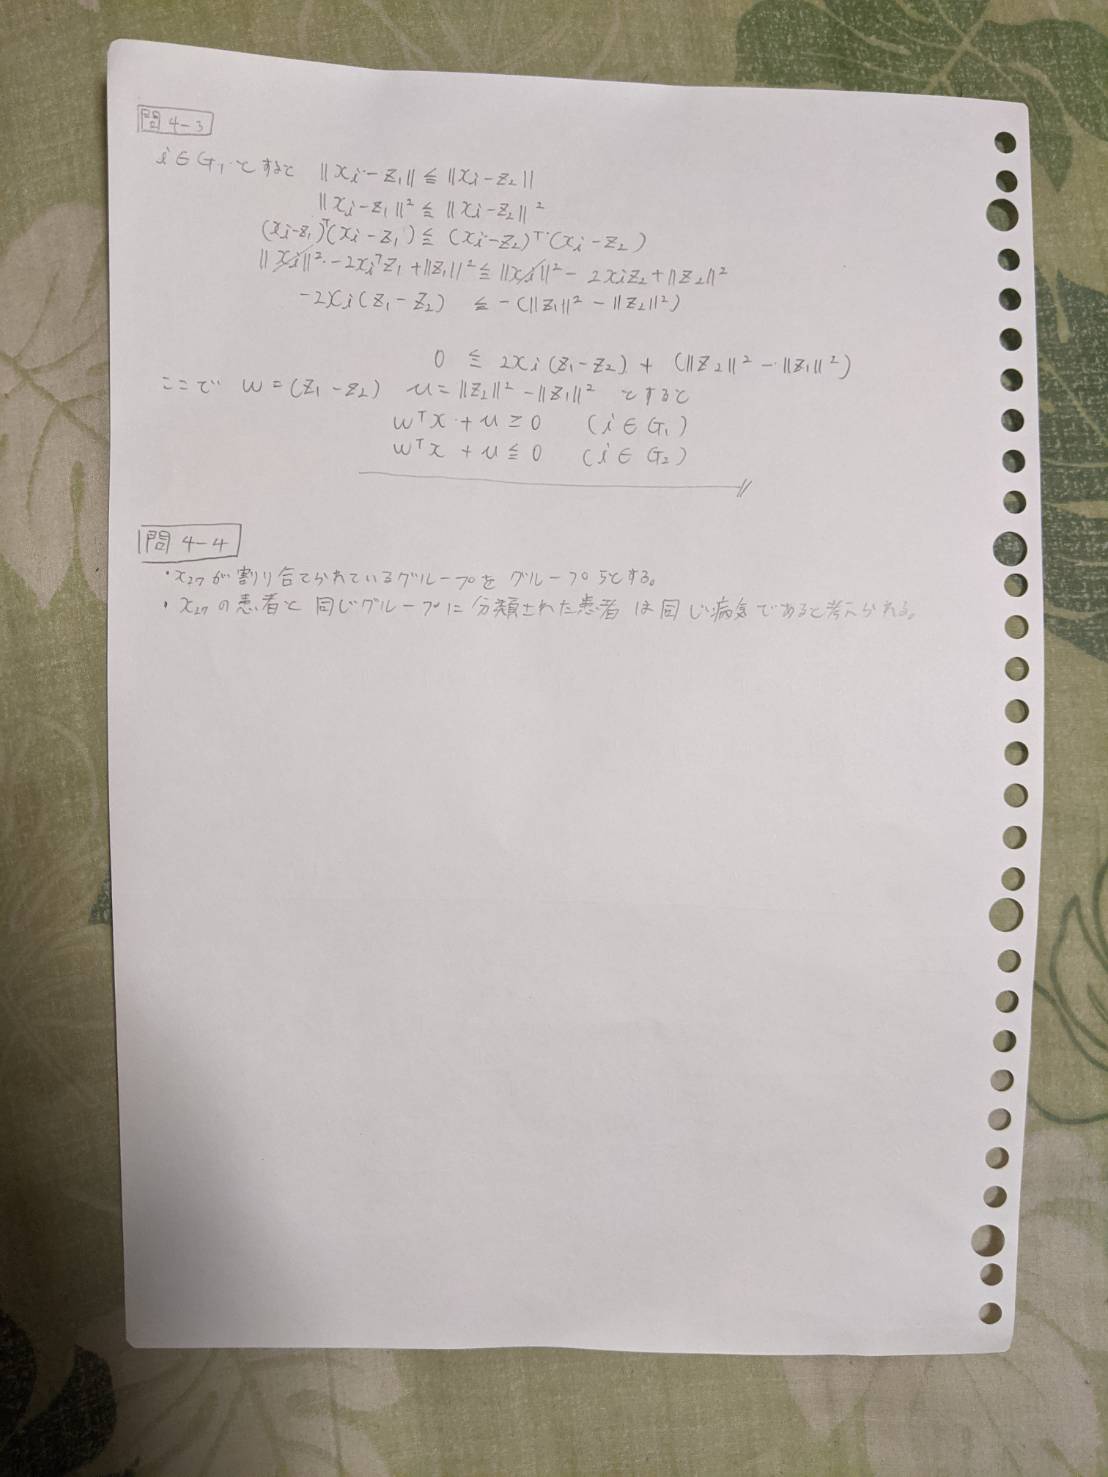 問 4-3
i∈G₁ とすると ||xi-z₁|| ≦ ||xi-z₂||
||xi-z₁||² ≦ ||xi-z₂||²
(xi-z₁)ᵀ(xi-z₁) ≦ (xi-z₂)ᵀ(xi-z₂)
||xi||² -2xiᵀz₁ + ||z₁||² ≦ ||xi||² - 2xiz₂ + ||z₂||²
-2xi(z₁-z₂) ≦ -(||z₁||² - ||z₂||²)
0 ≦ 2xi(z₁-z₂) + (||z₂||² - ||z₁||²)
ここで w=(z₁-z₂) u=||z₂||² - ||z₁||² とすると
wᵀx + u ≧ 0 (i∈G₁)
wᵀx + u ≦ 0 (i∈G₂)
問 4-4
・x₂₇が割り合てられているグループをグループ5とする。
・x₂₇の患者と同じグループに分類された患者は同じ病気であると考えられる。